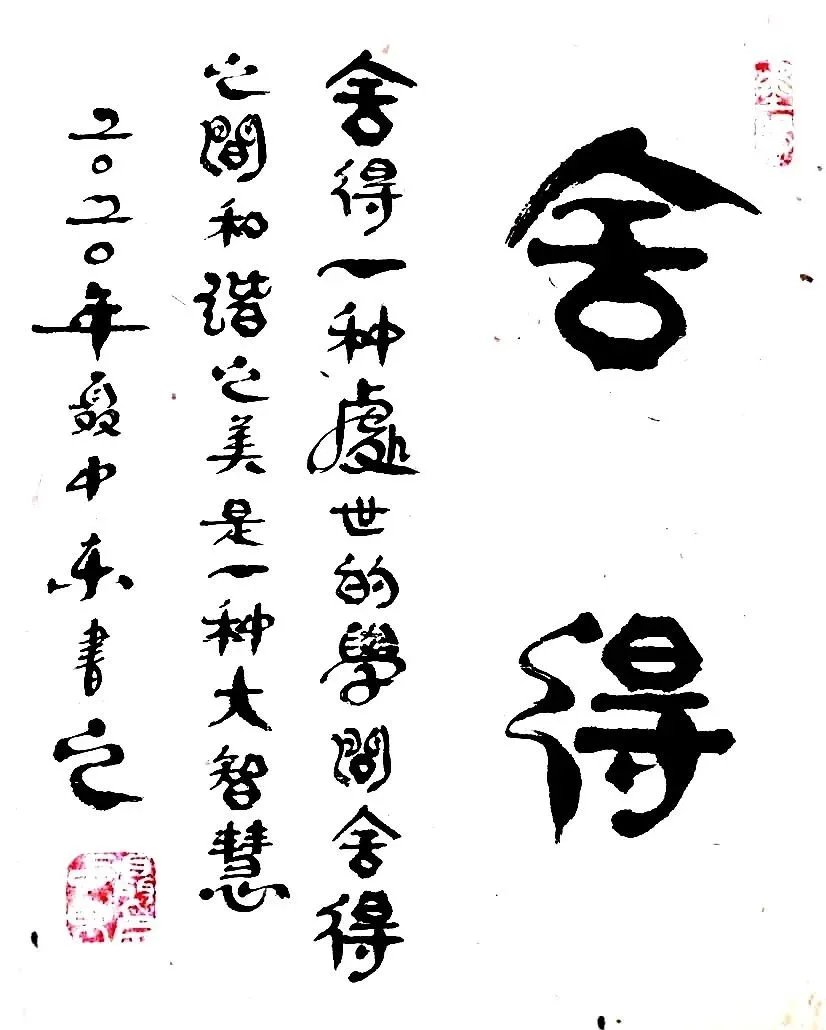 舍得
舍得一种處世的學問舍得
之間和諧之美是一种大智慧
二〇二〇年聂中东書之